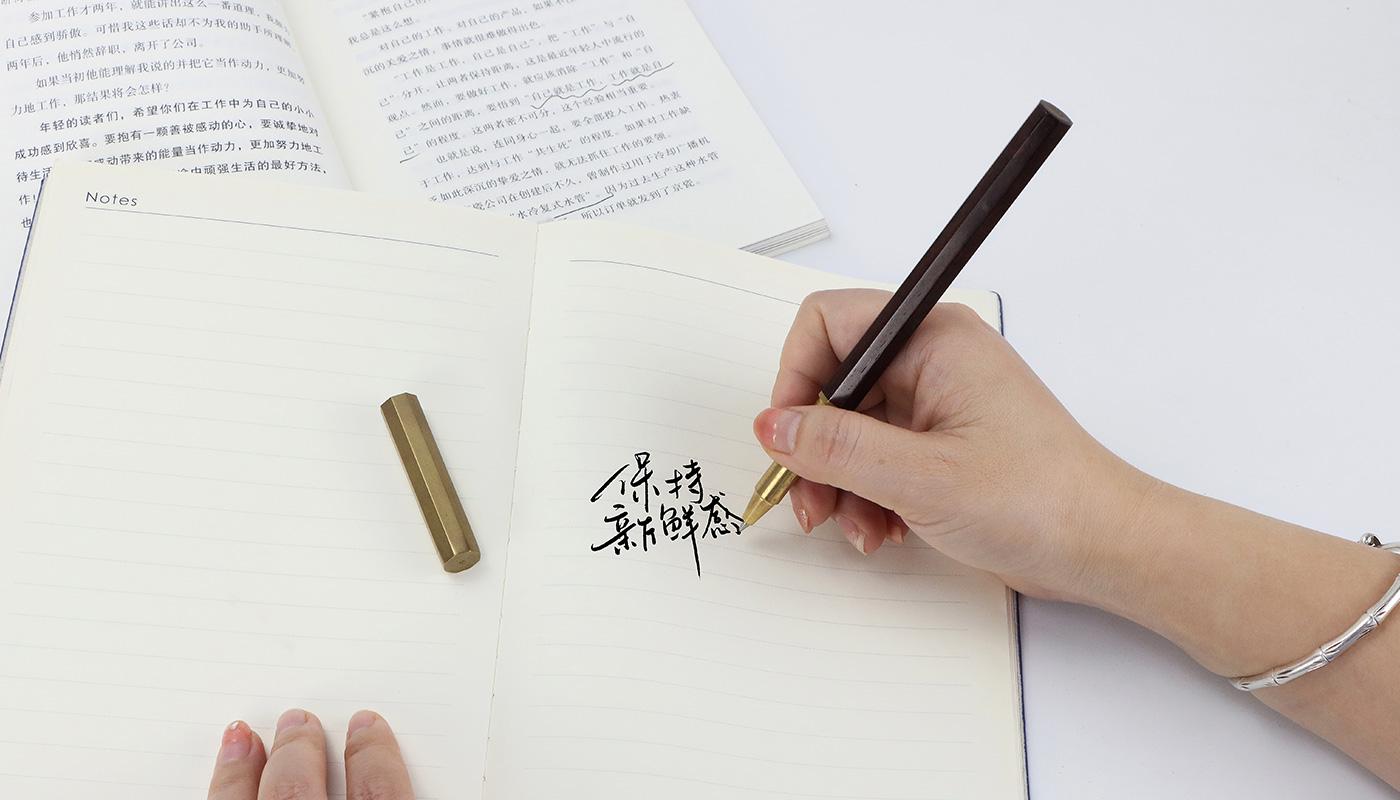 参加工作才两年，就能讲出这么一番道理，我
自己感到骄傲。可惜我这些话却不为我的助手所理
两年后，他悄然辞职，离开了公司。
如果当初他能理解我说的并把它当作动力，更加努
力地工作，那结果将会怎样？
年轻的读者们，希望你们在工作中为自己的小小
成功感到欣喜。要抱有一颗善被感动的心，要诚挚地对
待生活 感动带来的能量当作动力，更加努力地工
作！ 中顽强生活的最好方法，
也
"紧抱自己的
我总是这么想。
对自己的工作，对自己的产品，如果不
沉的关爱之情，事情就很难做得出色。
"工作是工作，自己是自己"，把"工作"与"自
己"分开，让两者保持距离，这是最近年轻人中流行的
观点。然而，要做好工作，就应该消除"工作"和"自
己"之间的距离，要悟到"自己就是工作，工作就是自
己"的程度。这两者密不可分，这个经验相当重要。
也就是说，连同身心一起，要全部投入工作，热衷
于工作，达到与工作"共生死"的程度。如果对工作缺
乏如此深沉的挚爱之情，就无法抓住工作的要领。
瓷公司在创建后不久，曾制作过用于冷却广播机
"水冷复式水管"。因为过去生产这种水管
所以订单就发到了京瓷。
Notes
保持
新鲜感